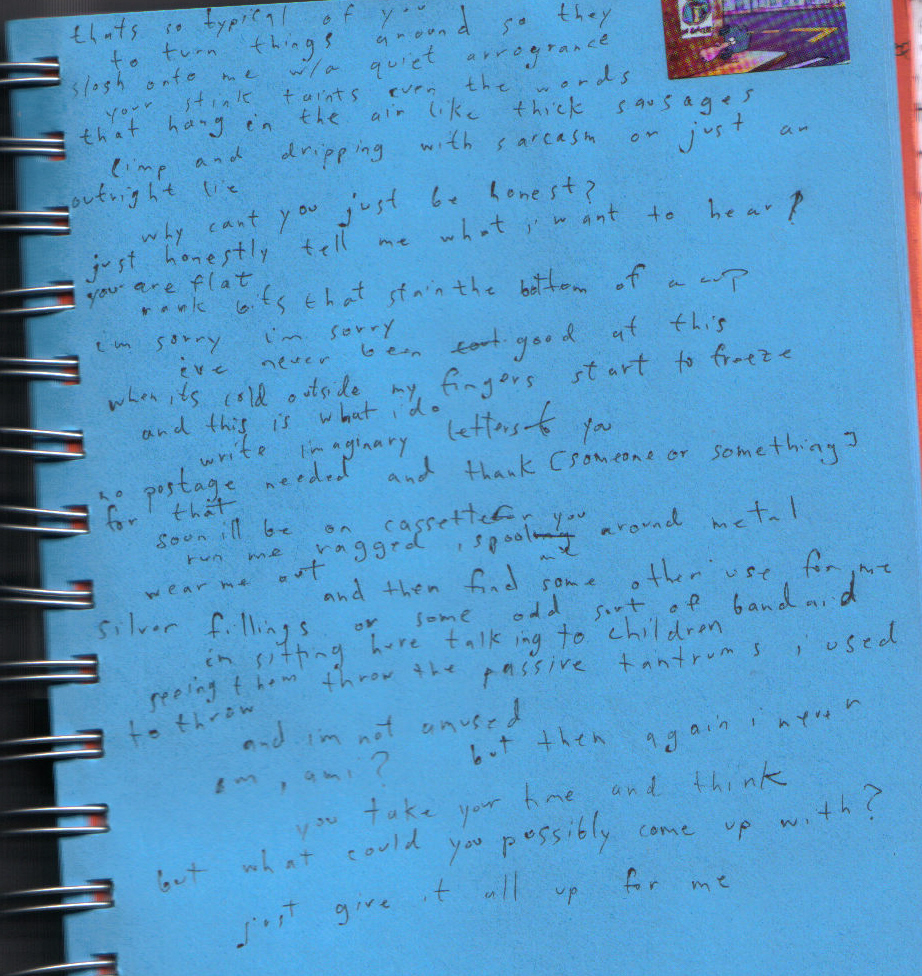 thats so typical of you
to turn things around so they
slosh onto me w/a quiet arrogrance
your stink taints even the words
that hang in the air like thick sausages
limp and dripping with sarcasm or just an
outright lie
why cant you just be honest?
just honestly tell me what i want to hear?
you are flat
rank bits that stain the bottom of a cup
im sorry im sorry
ive never been good at this
when its cold outside my fingers start to freeze
and this is what i do
write imaginary letters to you
no postage needed and thank [someone or something]
for that
soon ill be on cassette for you
run me ragged, spool me around metal
wear me out and then find some other use for me
silver fillings or some odd sort of bandaid
im sitting here talking to children
seeing them throw the passive tantrums i used
to throw
and im not amused
but then again i never
am, am i?
you take your time and think
but what could you possibly come up with?
just give it all up for me